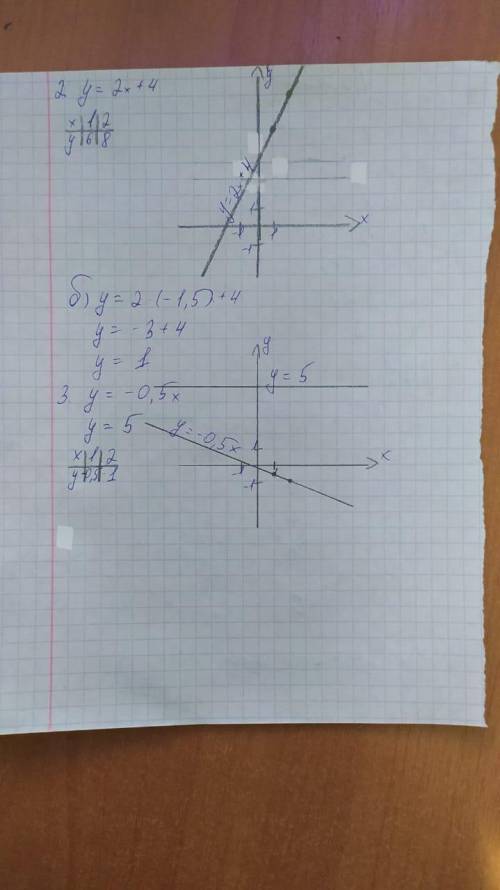 2. y = 2x+4
x | 1 | 2
y | 6 | 8
y
x
y=2x+4
1
-1
1
-1
б) y = 2·(-1,5)+4
y = -3+4
y = 1
3. y = -0,5x
y = 5
x | 1 | 2
y | -0,5 | -1
y
y = 5
y=-0,5x
x
1
-1
1
-1